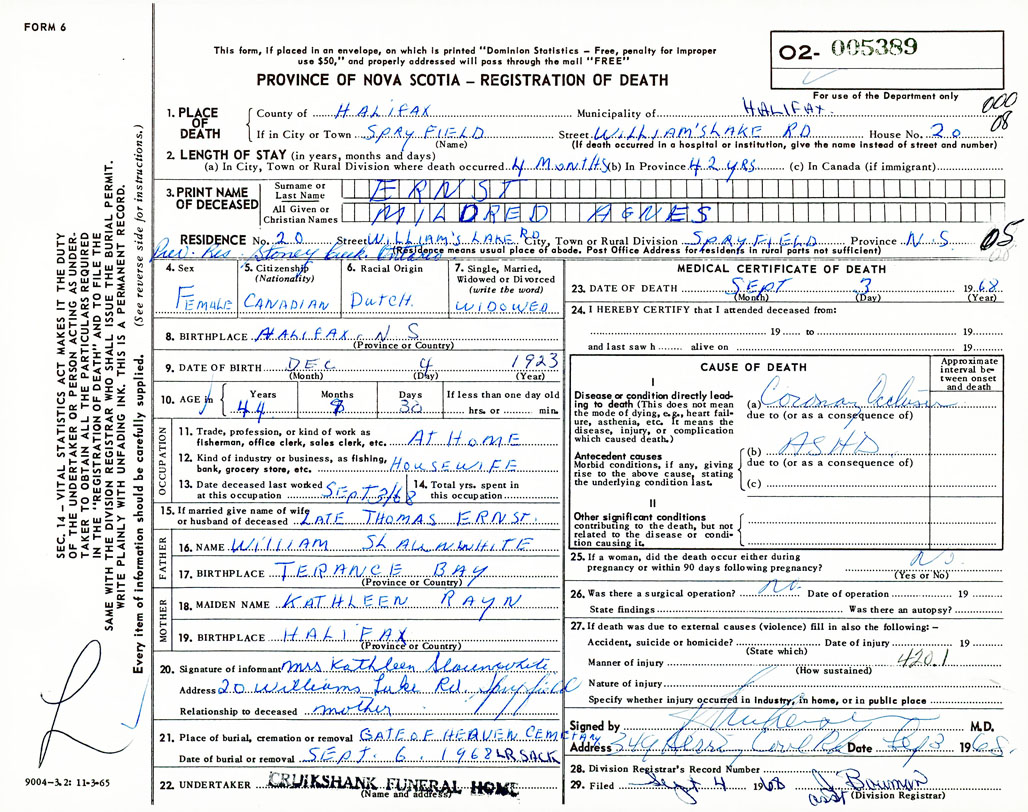 FORM 6
This form, if placed in an envelope, on which is printed "Dominion Statistics – Free, penalty for improper
use $50," and properly addressed will pass through the mail "FREE"
O2- 005389
PROVINCE OF NOVA SCOTIA – REGISTRATION OF DEATH
For use of the Department only
000
08
1. PLACE OF DEATH
County of HALIFAX Municipality of HALIFAX.
If in City or Town SPRYFIELD Street WILLIAM'S LAKE RD House No. 20
(Name) (If death occurred in a hospital or institution, give the name instead of street and number)
2. LENGTH OF STAY (in years, months and days)
(a) In City, Town or Rural Division where death occurred 4 MONTHS (b) In Province 42 YRS (c) In Canada (if immigrant)
3. PRINT NAME OF DECEASED
Surname or Last Name ERNST
All Given or Christian Names MILDRED AGNES
RESIDENCE No. 20 Street WILLIAM'S LAKE RD City, Town or Rural Division SPRYFIELD Province N.S. 05
(Residence means usual place of abode. Post Office Address for residents in rural parts not sufficient)
Prev. Res. Stoney Creek, Ontario
4. Sex FEMALE
5. Citizenship (Nationality) CANADIAN
6. Racial Origin DUTCH.
7. Single, Married, Widowed or Divorced (write the word) WIDOWED
8. BIRTHPLACE HALIFAX, N S
(Province or Country)
9. DATE OF BIRTH DEC 4 1923
(Month) (Day) (Year)
10. AGE in Years 44 Months 8 Days 30 If less than one day old hrs. or min.
OCCUPATION
11. Trade, profession, or kind of work as fisherman, office clerk, sales clerk, etc. AT HOME
12. Kind of industry or business, as fishing, bank, grocery store, etc. HOUSEWIFE
13. Date deceased last worked at this occupation SEPT 3/68 14. Total yrs. spent in this occupation
15. If married give name of wife or husband of deceased LATE THOMAS ERNST.
FATHER
16. NAME WILLIAM SLAUNWHITE
17. BIRTHPLACE TERANCE BAY
(Province or Country)
MOTHER
18. MAIDEN NAME KATHLEEN RAYN
19. BIRTHPLACE HALIFAX
(Province or Country)
20. Signature of informant Mrs Kathleen Slaunwhite
Address 20 Williams Lake Rd. Spryfield
Relationship to deceased mother
21. Place of burial, cremation or removal GATE OF HEAVEN CEMETARY
Date of burial or removal SEPT. 6, 1968 LR. SACK
22. UNDERTAKER CRUIKSHANK FUNERAL HOME
(Name and address)
MEDICAL CERTIFICATE OF DEATH
23. DATE OF DEATH SEPT 3 1968
(Month) (Day) (Year)
24. I HEREBY CERTIFY that I attended deceased from:
19 to 19
and last saw h alive on 19
CAUSE OF DEATH
Approximate interval between onset and death
I
Disease or condition directly leading to death (This does not mean the mode of dying, e.g., heart failure, asthenia, etc. It means the disease, injury, or complication which caused death.)
(a) Coronary Occlusion
due to (or as a consequence of)
Antecedent causes
Morbid conditions, if any, giving rise to the above cause, stating the underlying condition last.
(b) ASHD
due to (or as a consequence of)
(c)
II
Other significant conditions contributing to the death, but not related to the disease or condition causing it.
25. If a woman, did the death occur either during pregnancy or within 90 days following pregnancy? No
(Yes or No)
26. Was there a surgical operation? no. Date of operation 19
State findings Was there an autopsy?
27. If death was due to external causes (violence) fill in also the following: –
Accident, suicide or homicide? Date of injury 19
(State which)
Manner of injury 420.1
(How sustained)
Nature of injury
Specify whether injury occurred in industry, in home, or in public place
Signed by M.D.
Address 349 Herring Cove Rd Date Sep 3 1968
28. Division Registrar's Record Number
29. Filed Sept 4 1968 J Bauman
asst (Division Registrar)
SEC. 14 – VITAL STATISTICS ACT MAKES IT THE DUTY
OF THE UNDERTAKER OR PERSON ACTING AS UNDER-
TAKER TO OBTAIN ALL THE PARTICULARS REQUIRED
IN THE "REGISTRATION OF DEATH" AND TO FILE THE
SAME WITH THE DIVISION REGISTRAR WHO SHALL ISSUE THE BURIAL PERMIT.
WRITE PLAINLY WITH UNFADING INK. THIS IS A PERMANENT RECORD.
Every item of information should be carefully supplied. (See reverse side for instructions.)
9004-3.2: 11-3-65